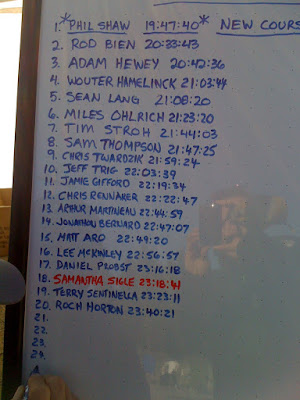 1. *PHIL SHAW 19:47:40* NEW COURS
2. ROD BIEN 20:33:43
3. ADAM HEWEY 20:42:36
4. WOUTER HAMELINCK 21:03:44
5. SEAN LANG 21:08:20
6. MILES OHLRICH 21:23:20
7. TIM STROH 21:44:03
8. SAM THOMPSON 21:47:25
9. CHRIS TWARDZIK 21:59:24
10. JEFF TRIG 22:03:39
11. JAMIE GIFFORD 22:19:34
12. CHRIS RENNAKER 22:22:47
13. ARTHUR MARTINEAU 22:44:59
14. JONATHON BERNARD 22:47:07
15. MATT ARO 22:49:20
16. LEE MCKINLEY 22:56:57
17. DANIEL PROBST 23:16:18
18. SAMANTHA SIGLE 23:18:41
19. TERRY SENTINELLA 23:23:11
20. ROCH HORTON 23:40:21
21.
22.
23.
24.